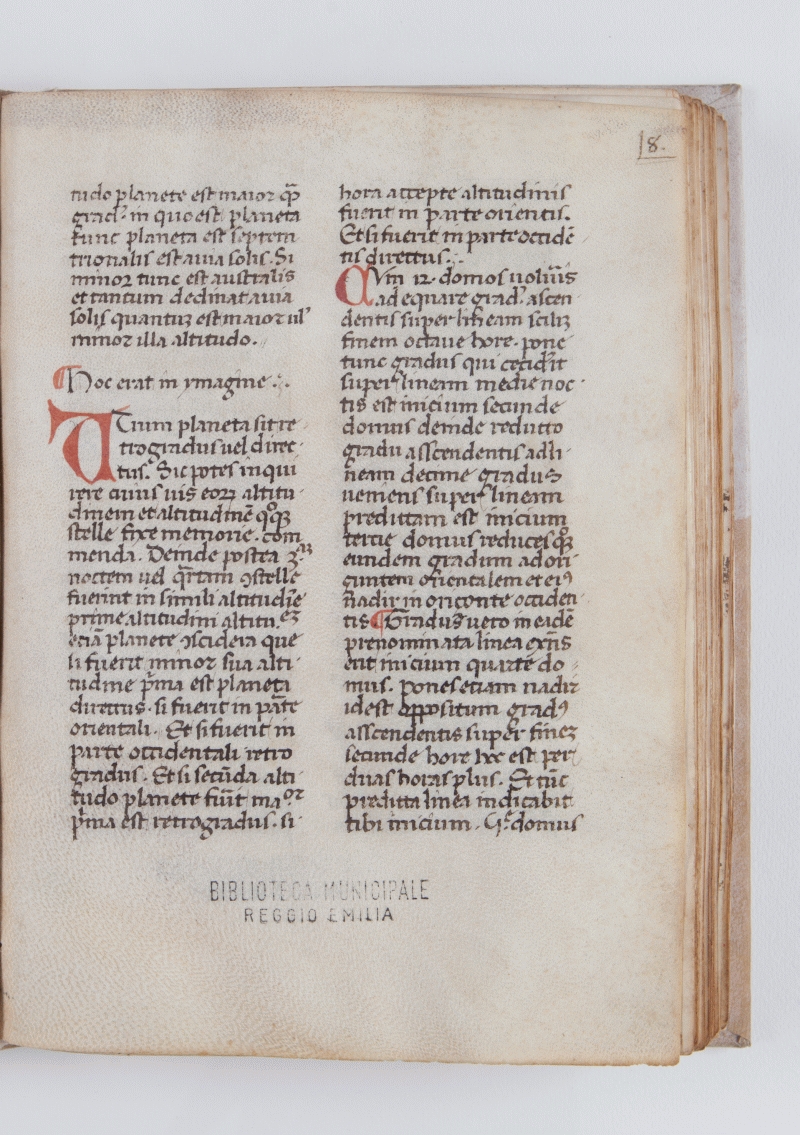 18.
tudo planete est maior qᷓ
grad᾽ in quo est planeta
tunc planeta est septem
trionalis est a uia solis. Si
minor tunc est australis
et tantum declinat a uia
solis quantuꝫ est maior ul᾽
minor illa altitudo.
Hoc erat in ymagine
Utrum planeta sit re
trogradus uel direc
tus. Sic potes inqui
rere cuius uis eoꝝ altitu
dinem et altitudinē
stelle fixe memorie com
menda. Deinde postea
noctem uel ꝯstelle
fuerint in simili altitudīe
prime altitudini
planete ꝯsidera que
si fuerit minor sua alti
tudine p̄ma est planeta
directus. si fuerit in pāte
orientali. Et si fuerit in
parte occidentali retro
gradus. Et si secūda alti
tudo planete fiūt ma
p̄ma est retrogradus. si
hora accepte altitudinis
fuerit in parte orientis.
Et si fuerit in parte occidē
tis directus.
Cum 12. domos uolūis
adequare grad᾽ ascen
dentis super lineam
finem octaue hore. pone
tunc gradus qui cecid᾽it
super lineam medie noc
tis est inicium secunde
domus deinde reducto
gradu asscendentis ad li
neam decime gradus
ueniens super lineam
predictam est inicium
tercie domus reduces
eundem gradum ad ori
zuntem orientalem et eiꝰ
nadir in orizonte occiden
tis Gradus uero in eidē
prenominata linea exn̄s
erit inicium quarte do
mus. pones etiam nadir
idest oppositum gradꝰ
asscendentis super fineꝫ
secunde hore hoc est per
duas horas plus. Et tūc
predicta linea indicabit
tibi inicium. domus
BIBLIOTECA MUNICIPALE
REGGIO EMILIA